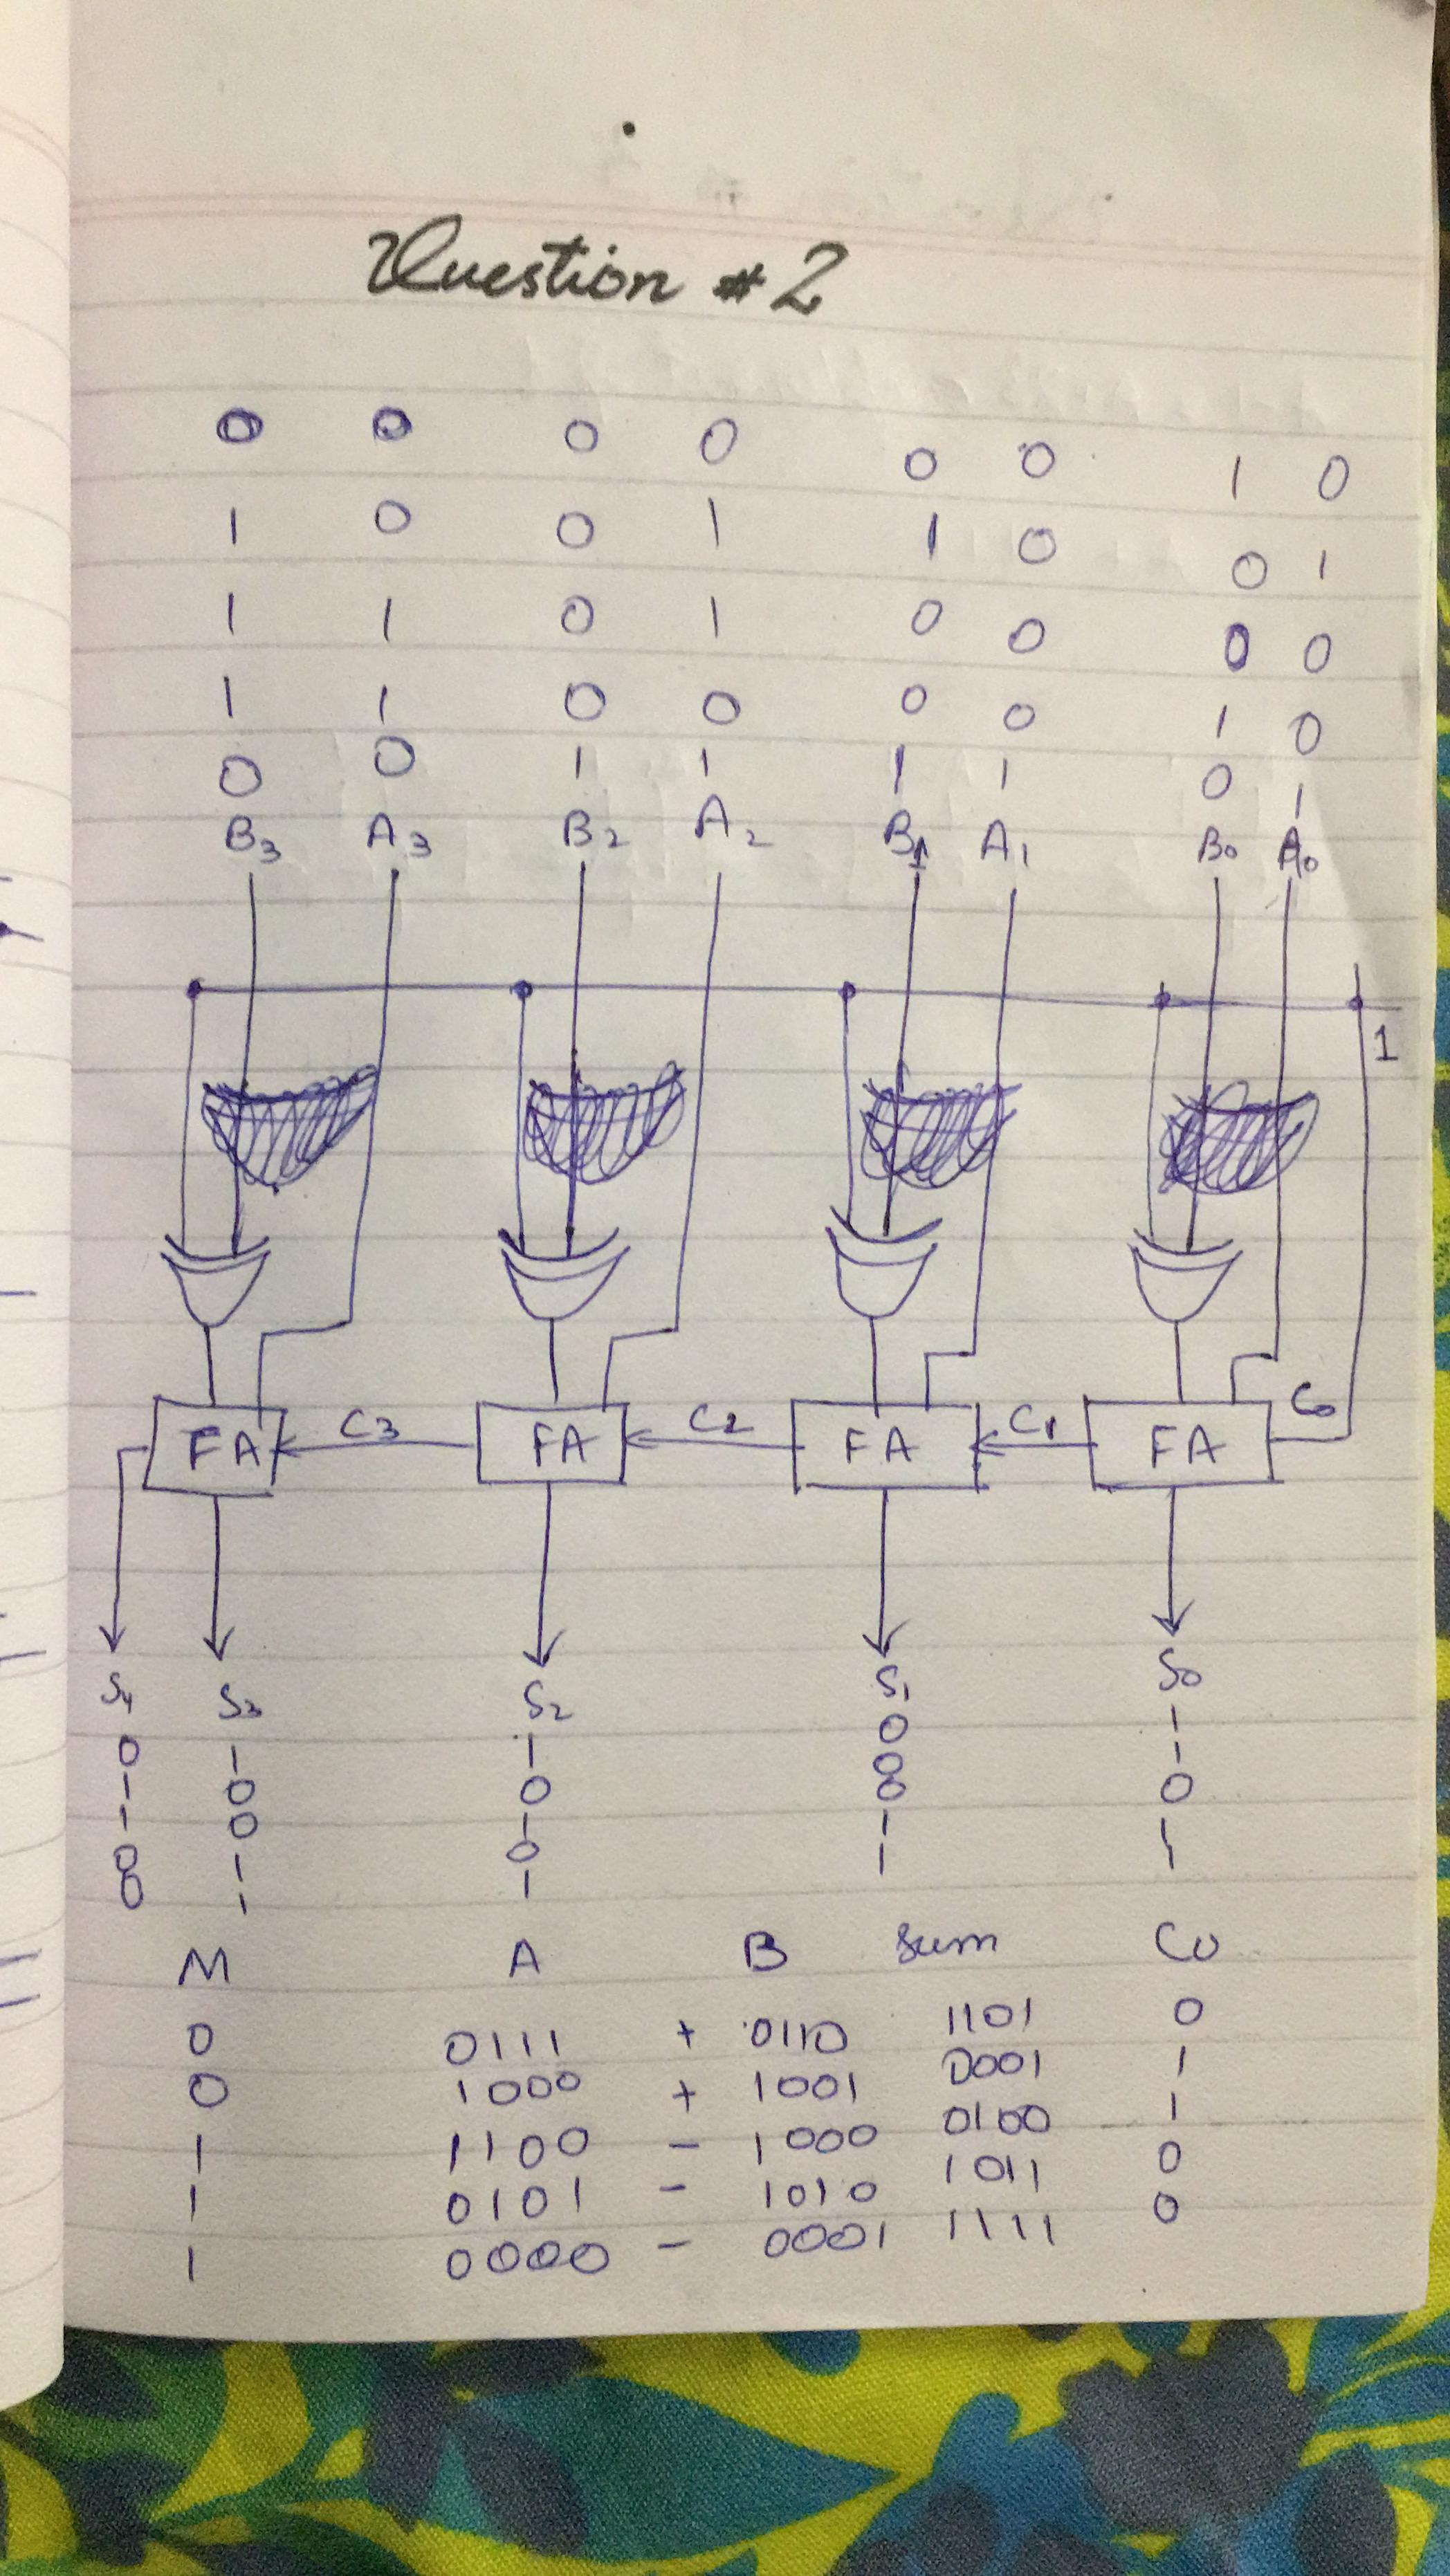 Question # 2
0 0 0 0 0 0 1 0
1 0 0 1 1 0 0 1
1 1 0 1 0 0 0 0
1 1 0 0 0 0 1 0
0 0 1 1 1 1 0 1
B3 A3 B2 A2 B1 A1 B0 A0
1
C0
FA C3 FA C2 FA C1 FA
S4 S3 S2 S1 S0
0 1 1 0 1
1 0 0 0 1
1 0 1 0 0
0 1 0 1 1
0 1 1 1 1
M A B Sum C0
0 0111 + 0110 1101 0
0 1000 + 1001 0001 1
1 1100 - 1000 0100 1
1 0101 - 1010 1011 0
1 0000 - 0001 1111 0